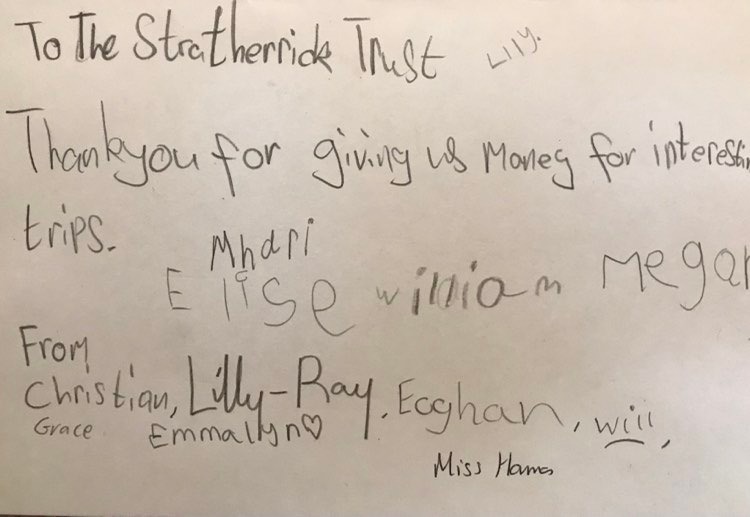 To The Stratherrick Trust Lily.
Thankyou for giving us money for interestin
trips.
Mhari
Elise william Megan
From
Christian, Lilly-Ray, Eoghan, will,
Grace Emmallyn♡
Miss